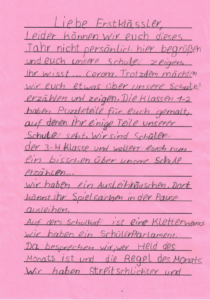 Liebe Erstklässler,
Leider können wir euch dieses
Jahr nicht persönlich hier begrüßen
und euch unsere Schule zeigen.
Ihr wisst... Corona. Trotzdem möchten
wir euch etwas über unsere Schule
erzählen und zeigen. Die Klassen 1-2
haben Puzzleteile für euch gemalt,
auf denen ihr einige Teile unserer
Schule seht. Wir sind Schüler
der 3-4 Klasse und wollen euch nun
ein bisschen über unsere Schule
erzählen...
Wir haben ein Ausleihhäuschen. Dort
könnt ihr Spielsachen in der Pause
ausleihen.
Auf dem Schulhof ist eine Kletterwand
wir haben ein Schülerparlament.
Da besprechen wir, wer Held des
Monats ist und die Regel des Monats
Wir haben Streitschlichter und